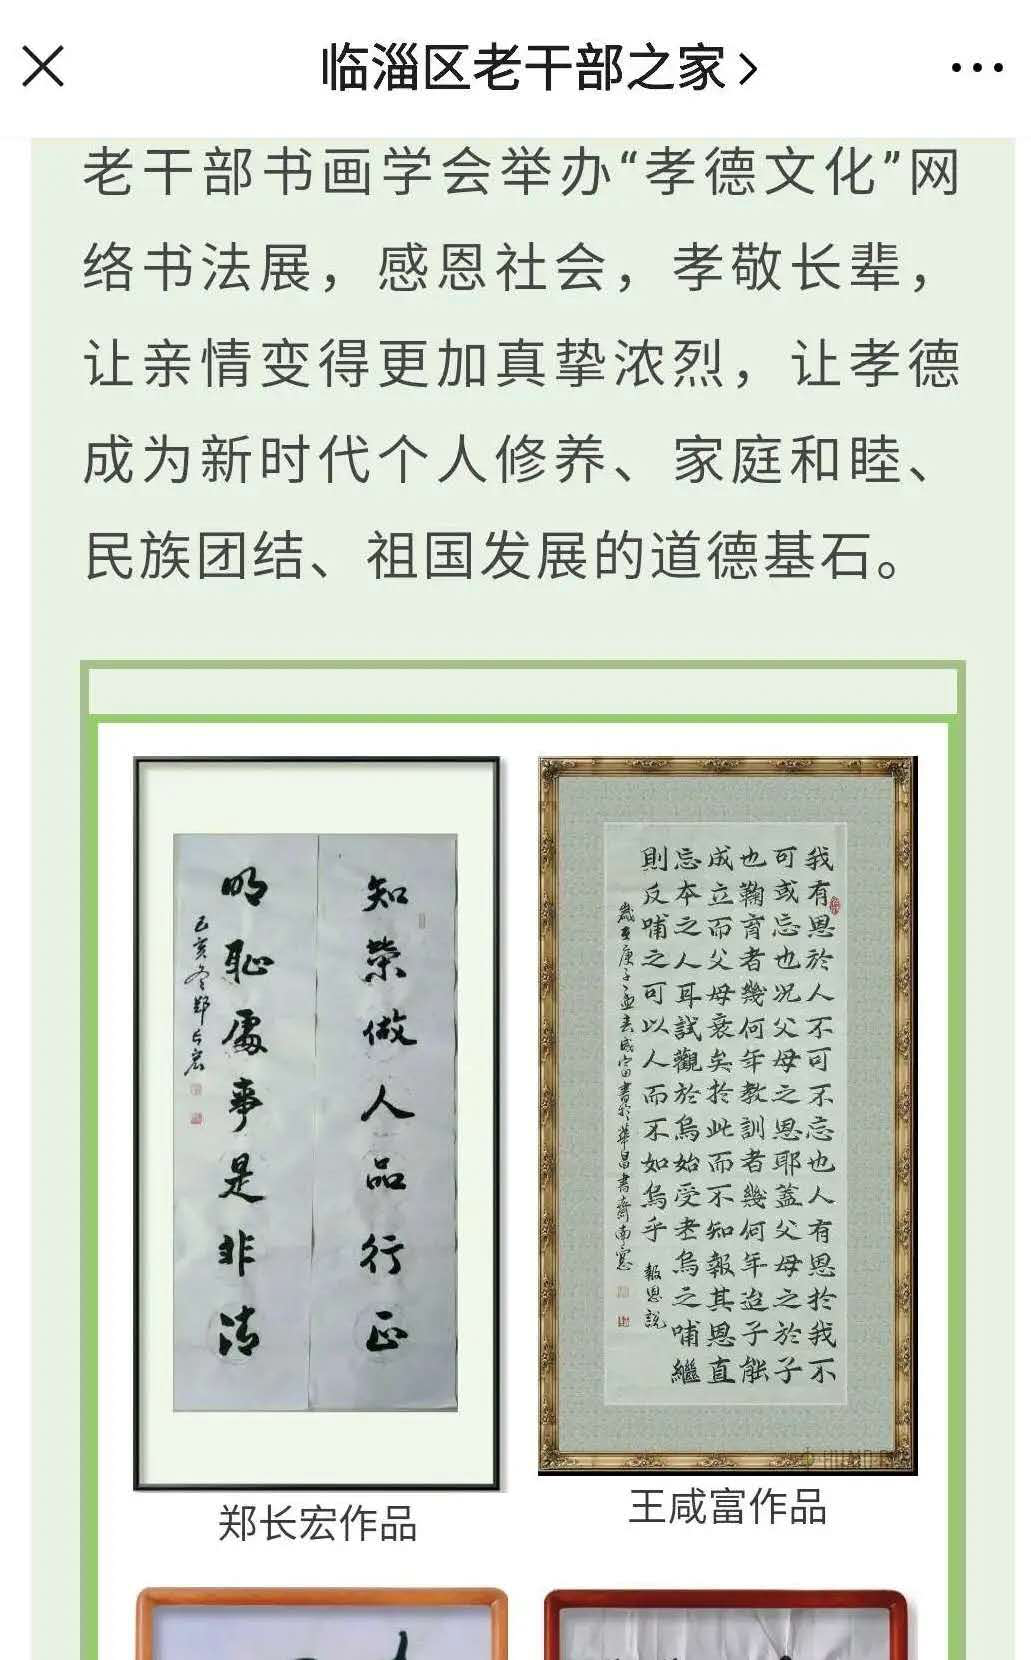 临淄区老干部之家
老干部书画学会举办“孝德文化”网
络书法展，感恩社会，孝敬长辈，
让亲情变得更加真挚浓烈，让孝德
成为新时代个人修养、家庭和睦、
民族团结、祖国发展的道德基石。
知荣做人品行正
明恥處事是非清
己亥冬郑长宏
郑长宏作品
我有恩於人不可不忘也人有恩於我不
可或忘也况父母之恩耶蓋父母之於子
也鞠育者幾何年教訓者幾何年迨子能
成立而父母衰矣於此而不知報其恩直
忘本之人耳試觀於烏始受老烏之哺繼
則反哺之可以人而不如烏乎 報恩説
歲在庚子孟春咸富書於華昌書齋南窓
王咸富作品